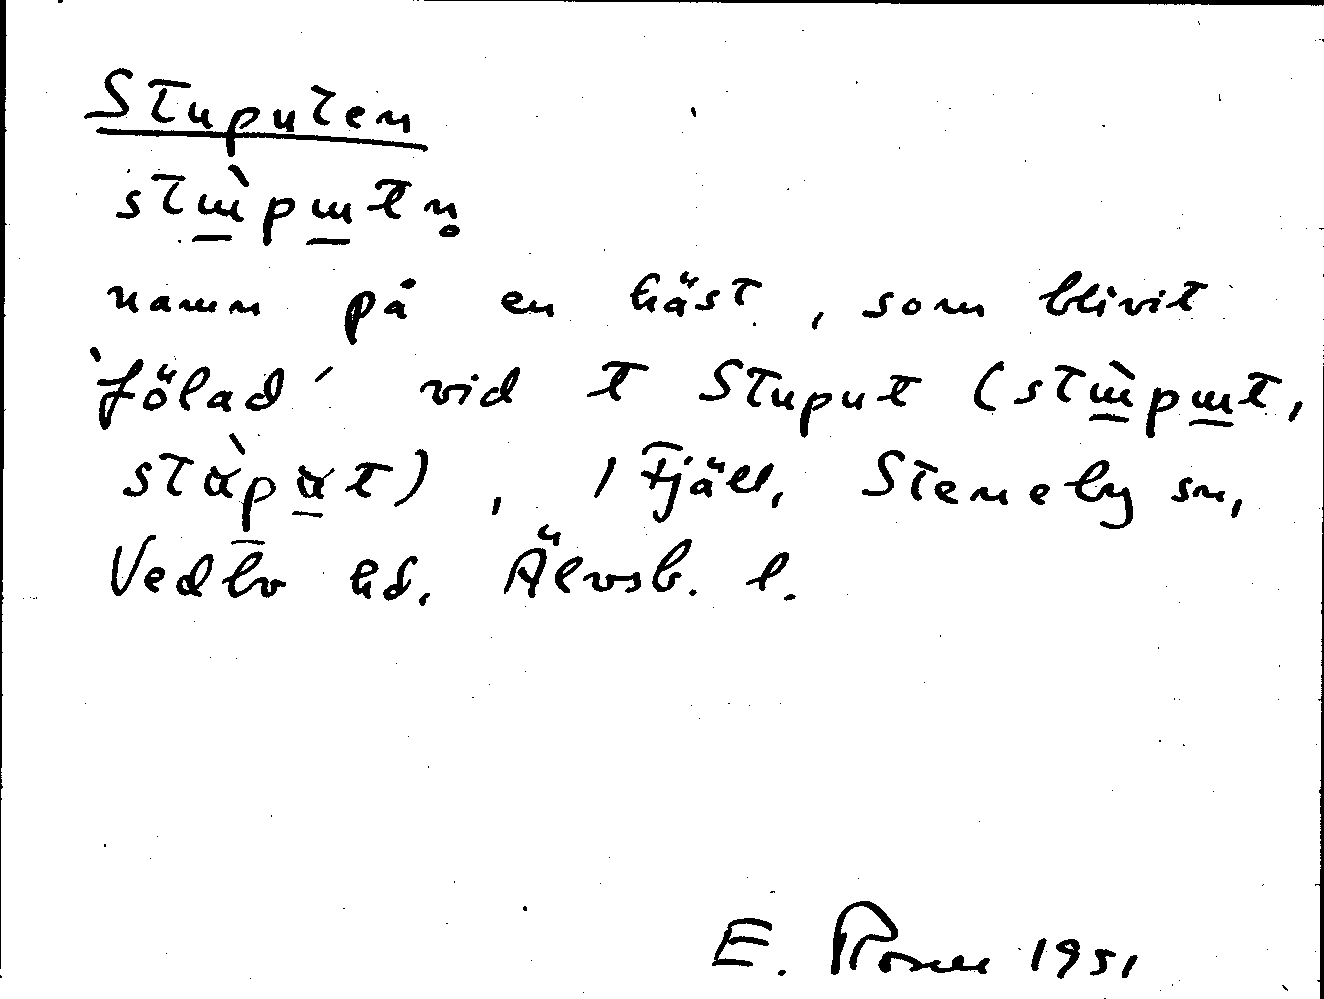 Stuputen
stɯ̀pɯtn̥
namn på en häst, som blivit
'fölad' vid t Stuput (stɯ̀pɯt,
stàpat), 1 Fjäll, Steneby sn,
Vedbo hd. Älvsb. l.
E. Rosell 1951